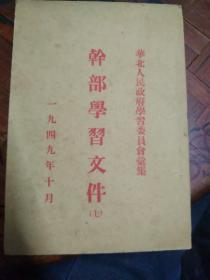 華北人民政府學習委員會彙集
幹部學習文件
(七)
一九四九年十月